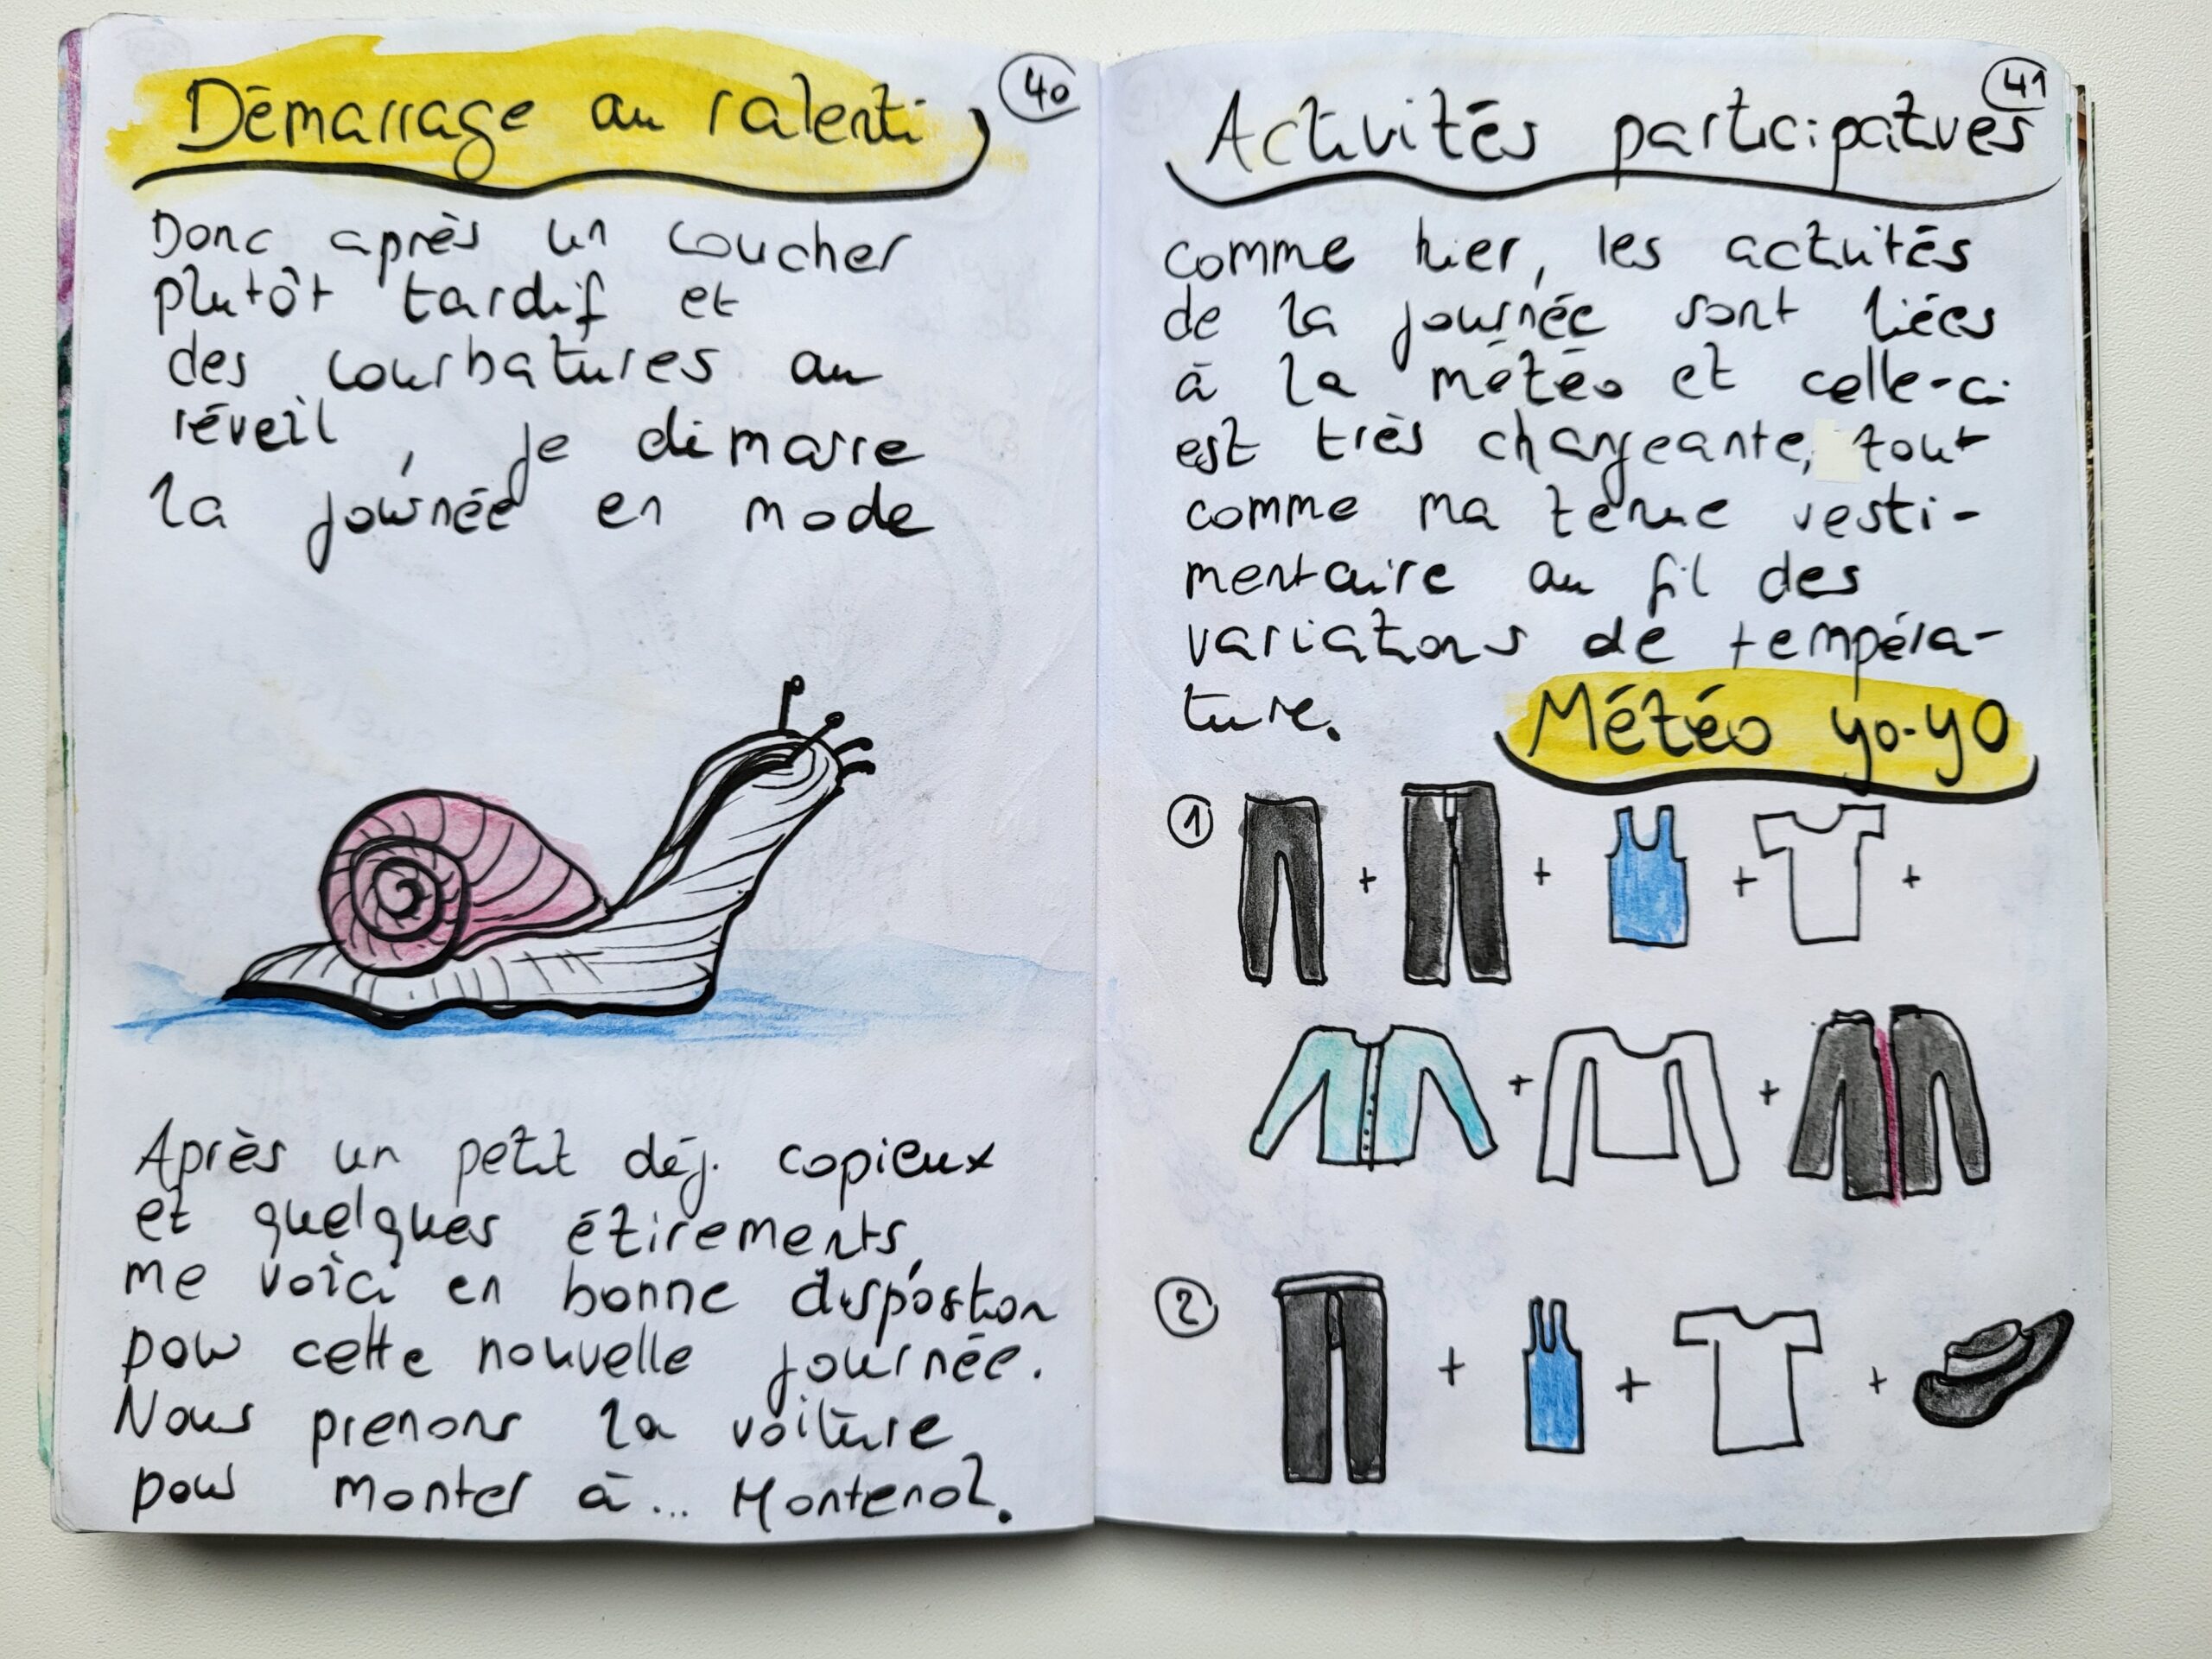 40
Démarrage au ralenti
Donc après un coucher
plutôt tardif et
des courbatures au
réveil, je démarre
la journée en mode
Après un petit déj. copieux
et quelques étirements,
me voici en bonne disposition
pour cette nouvelle journée.
Nous prenons la voiture
pour monter à... Montenol.
41
Activités participatives
comme hier, les activités
de la journée sont liées
à la météo et celle-ci
est très changeante, tout
comme ma tenue vesti-
mentaire au fil des
variations de tempéra-
ture.
Météo yo-yo
1 + + + +
+ +
2 + + +